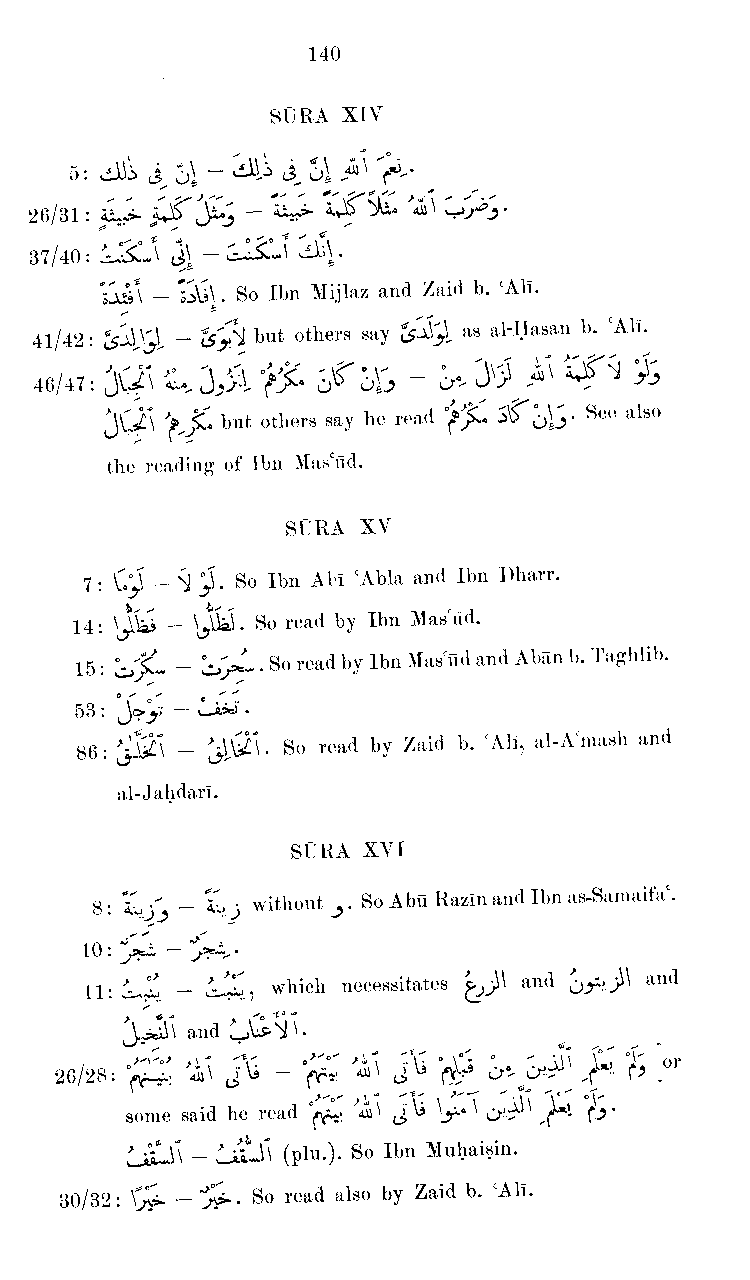 140
SŪRA XIV
5: إِنّ فِى ذلك – نِعَمُ ٱللهِ إِنَّ فِى ذٰلِكَ.
26/31: وَمَثَلُ كَلِمَةٍ خَبِيثَةٍ – وَضَرَبَ ٱللهُ مَثَلاً كَلِمَةً خَبِيثَةً.
37/40: إِنِّى أَسْكَنْتُ – إِنَّكَ أَسْكَنْتَ.
أَفْئِدَةً – إِفَادَةً. So Ibn Mijlaz and Zaid b. ʿAlī.
41/42: لِوَالِدَىَّ – لِأَبَوَىَّ but others say لِوَلَدَىَّ as al-Ḥasan b. ʿAlī.
46/47: وَإِنْ كَانَ مَكْرُهُمْ لِتَزُولَ مِنْهُ ٱلْجِبَالُ – وَلَوْ لَا كَلِمَةُ ٱللهِ لَزَالَ مِنْ
مَكْرِهِمُ ٱلْجِبَالُ but others say he read وَإِنْ كَادَ مَكْرُهُمْ. See also
the reading of Ibn Masʿūd.
SŪRA XV
7: لَوْمَا – لَوْ لَا. So Ibn Abī ʿAbla and Ibn Dharr.
14: فَظَلُّوا – لَظَلُّوا. So read by Ibn Masʿūd.
15: سُكِّرَتْ – سُحِرَتْ. So read by Ibn Masʿūd and Abān b. Taghlib.
53: تَوْجَلْ – تَخَفْ.
86: ٱلْخَلَّٰقُ – ٱلْخَالِقُ. So read by Zaid b. ʿAlī, al-Aʿmash and
al-Jaḥdarī.
SŪRA XVI
8: وَزِينَةً – زِينَةً without و. So Abū Razīn and Ibn as-Samaifaʿ.
10: شَجَرٌ – شِجَرٌ.
11: يُنْبِتُ – يَنْبُتُ, which necessitates الزرعُ and الزيتونُ and
ٱلنَّخِيلُ and ٱلْأَعْنَابُ.
26/28: فَأَتَى ٱللهُ بُنْيَٰنَهُمْ – وَلَمْ يَعْلَمِ ٱلَّذِينَ مِنْ قَبْلِهِمْ فَأَتَى ٱللهُ بَيْتَهُمْ or
some said he read وَلَمْ يَعْلَمِ ٱلَّذِينَ آمَنُوا فَأَتَى ٱللهُ بَيْتَهُمْ.
ٱلسَّقْفُ – ٱلسُّقُفُ (plu.). So Ibn Muḥaiṣin.
30/32: خَيْرًا – خَيْرٌ. So read also by Zaid b. ʿAlī.